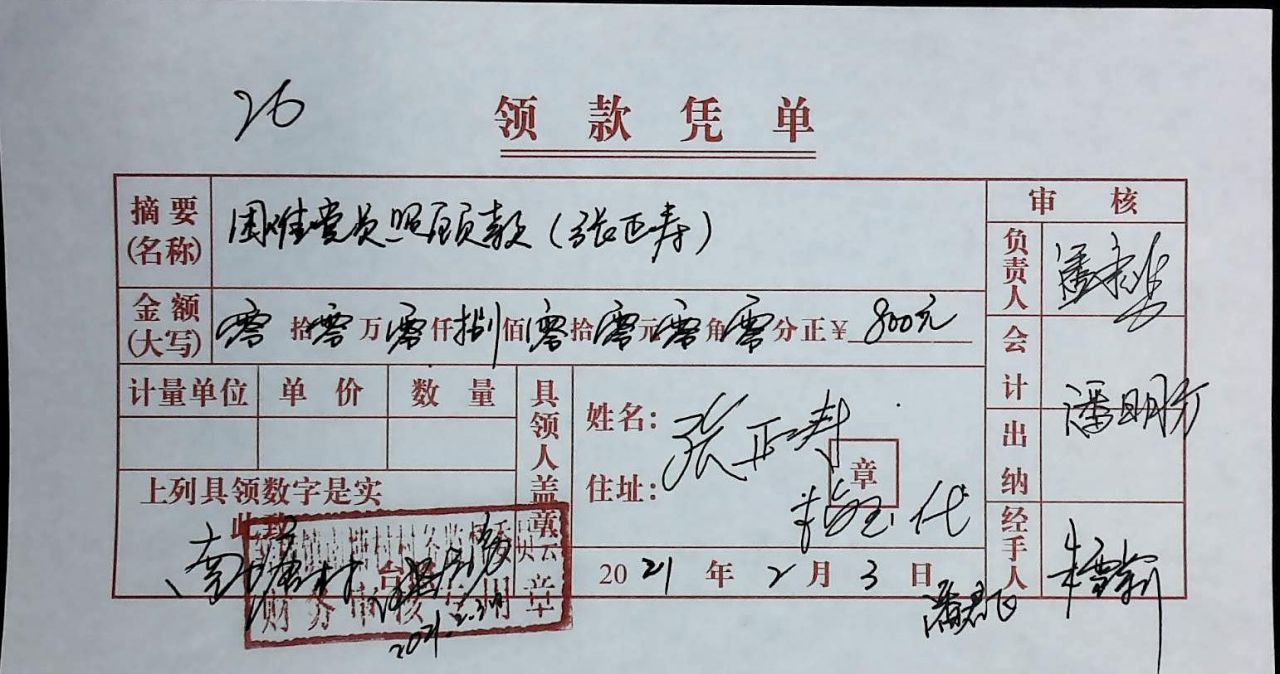 26
领款凭单
摘要(名称) 困难党员照顾款（张正寿）
金额(大写) 零拾零万零仟捌佰零拾零元零角零分正¥800元
计量单位 单价 数量
上列具领数字是实
此致
南塘村
2021.2.3
具领人盖章
姓名： 张正寿
住址：
章
代
2021年2月3日
审核
负责人 潘
会计
潘明方
出纳
经手人 朱
财务 章
潘君飞